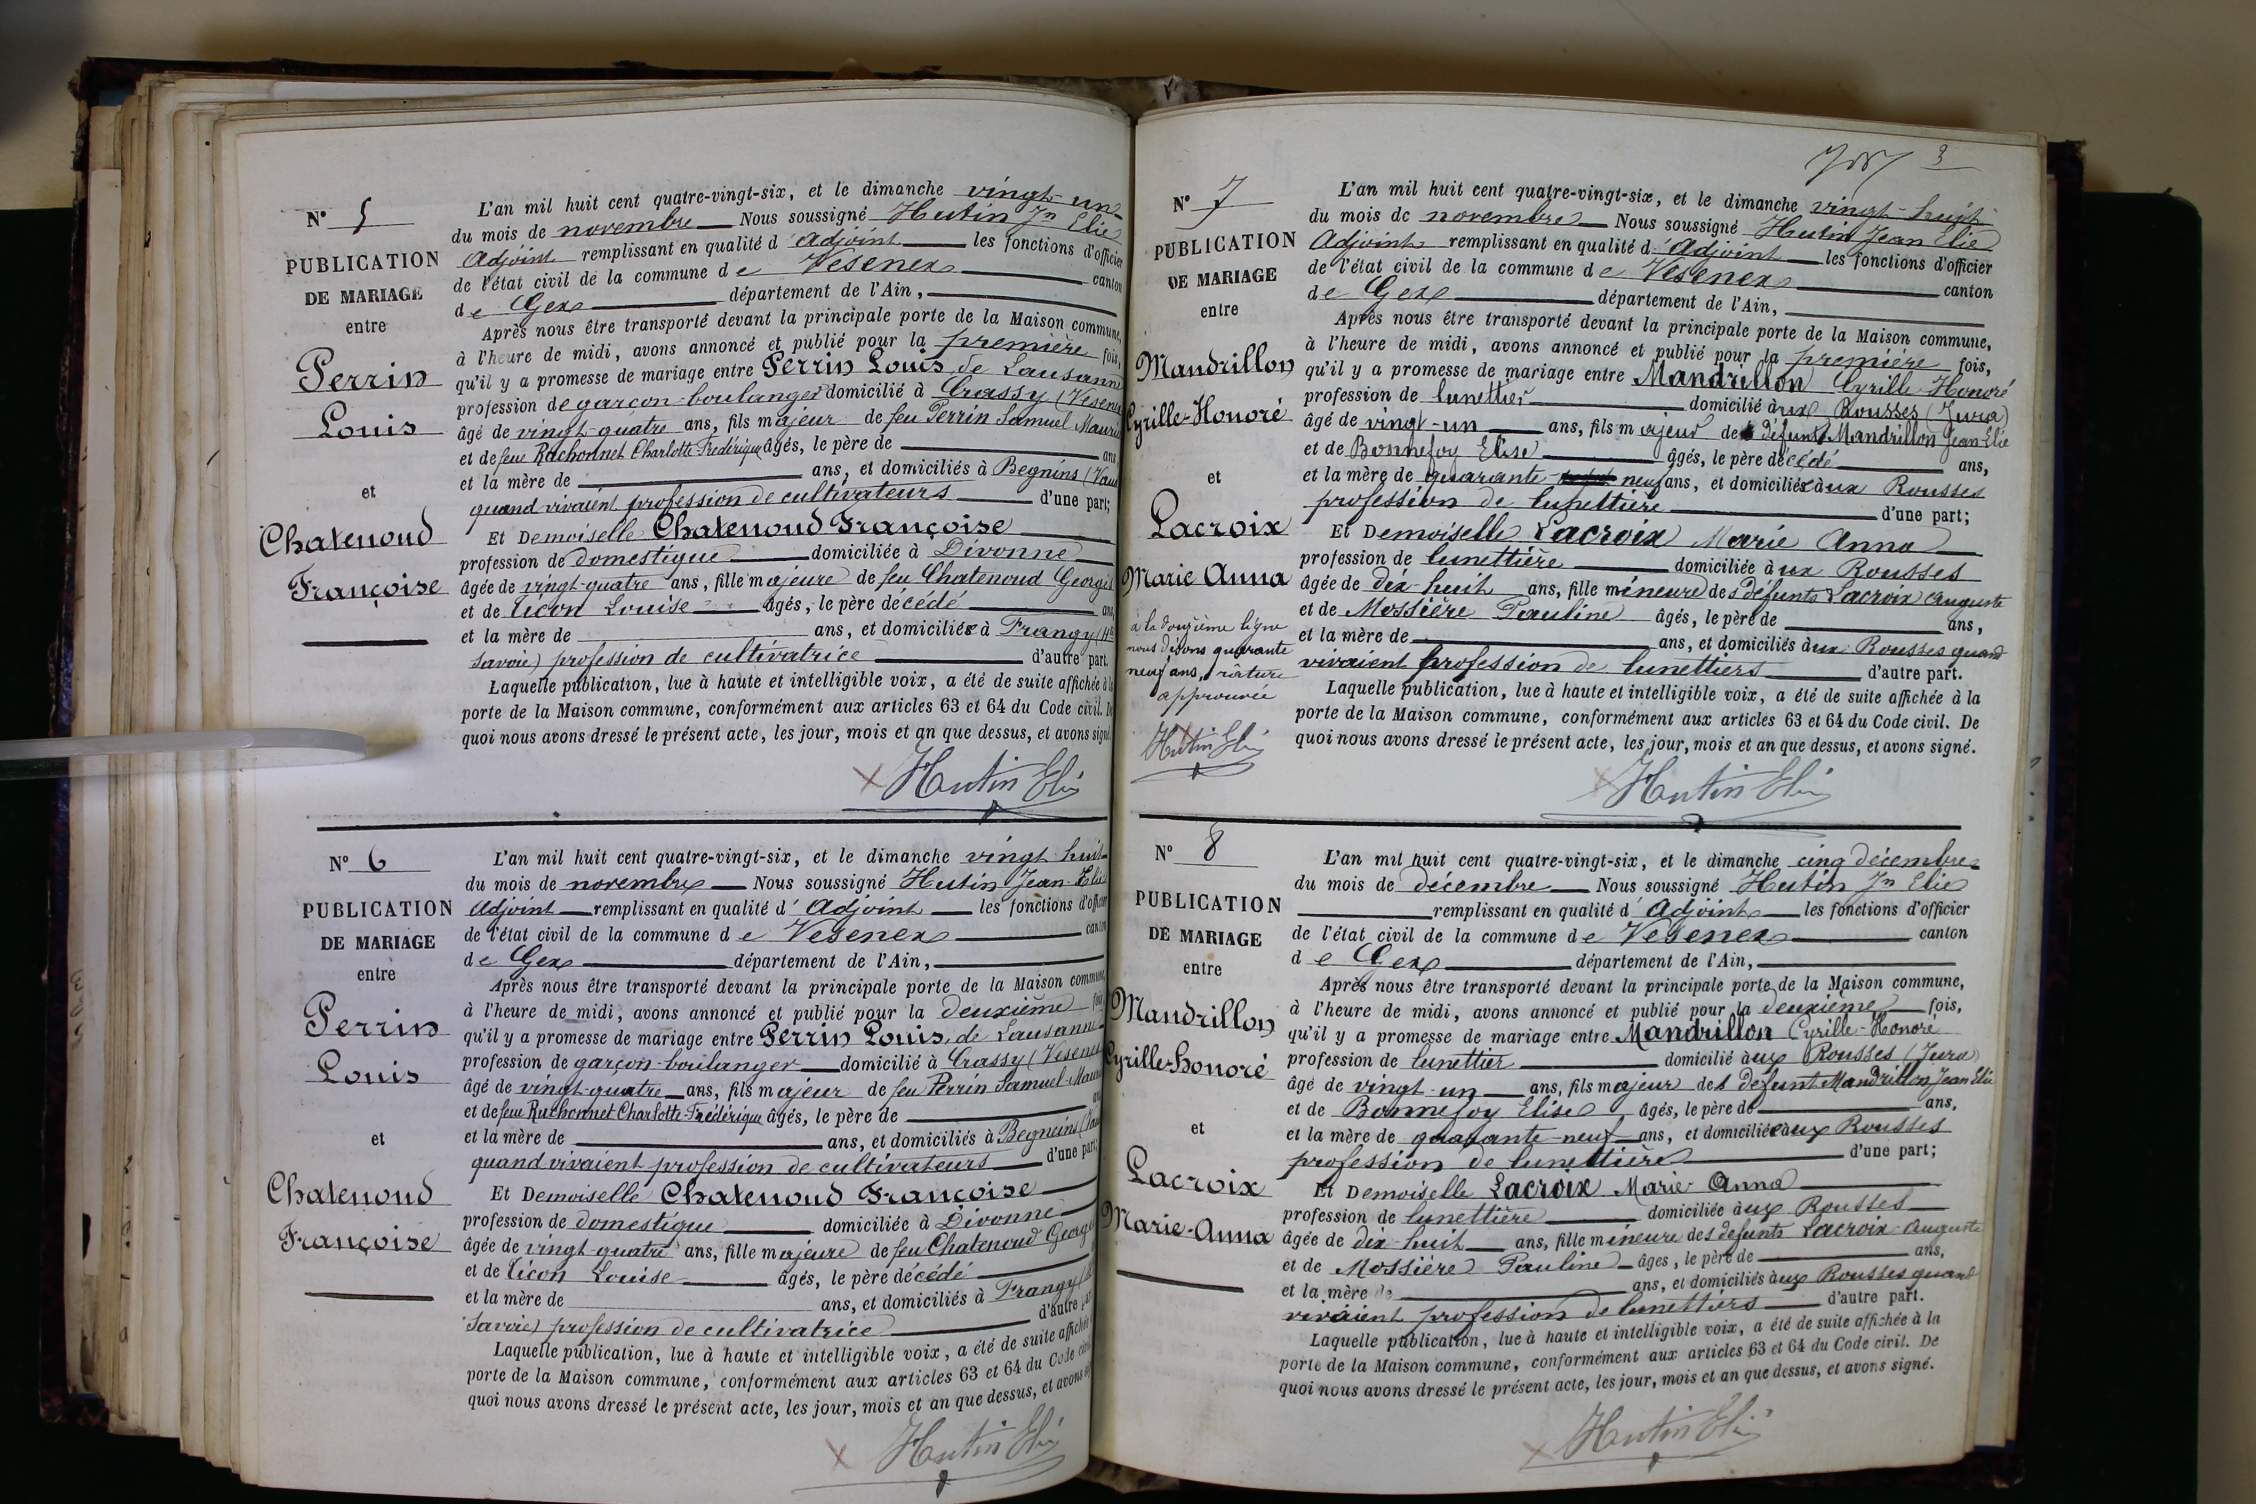 N° 5
PUBLICATION
DE MARIAGE
entre
Perrin
Louis
et
Chatenoud
Françoise
L'an mil huit cent quatre-vingt-six, et le dimanche vingt-un
du mois de novembre Nous soussigné Hutin Jn Elie
Adjoint remplissant en qualité d'Adjoint les fonctions d'officier
de l'état civil de la commune de Vesenex canton
de Gex département de l'Ain,
Après nous être transporté devant la principale porte de la Maison commune,
à l'heure de midi, avons annoncé et publié pour la première fois,
qu'il y a promesse de mariage entre Perrin Louis, de Lausanne
profession de garçon-boulanger domicilié à Crassy (Vesenex
âgé de vingt-quatre ans, fils majeur de feu Perrin Samuel Maurice
et de feue Ruchonnet Charlotte-Frédérique âgés, le père de ans
et la mère de ans, et domiciliés à Begnins (Vaud
quand vivaient profession de cultivateurs d'une part;
Et Demoiselle Chatenoud Françoise
profession de domestique domiciliée à Divonne
âgée de vingt-quatre ans, fille majeure de feu Chatenoud Georges
et de Licon Louise âgés, le père décédé ans
et la mère de ans, et domiciliée à Frangy (Hte
Savoie) profession de cultivatrice d'autre part.
Laquelle publication, lue à haute et intelligible voix, a été de suite affichée à la
porte de la Maison commune, conformément aux articles 63 et 64 du Code civil. De
quoi nous avons dressé le présent acte, les jour, mois et an que dessus, et avons signé.
Hutin Elie
N° 6
PUBLICATION
DE MARIAGE
entre
Perrin
Louis
et
Chatenoud
Françoise
L'an mil huit cent quatre-vingt-six, et le dimanche vingt-huit
du mois de novembre Nous soussigné Hutin Jean-Elie
Adjoint remplissant en qualité d'Adjoint les fonctions d'officier
de l'état civil de la commune de Vesenex canton
de Gex département de l'Ain,
Après nous être transporté devant la principale porte de la Maison commune,
à l'heure de midi, avons annoncé et publié pour la deuxième fois,
qu'il y a promesse de mariage entre Perrin Louis, de Lausanne
profession de garçon-boulanger domicilié à Crassy (Vesenex
âgé de vingt-quatre ans, fils majeur de feu Perrin Samuel-Maurice
et de feue Ruchonnet Charlotte-Frédérique âgés, le père de ans
et la mère de ans, et domiciliés à Begnins (Vaud
quand vivaient profession de cultivateurs d'une part;
Et Demoiselle Chatenoud Françoise
profession de domestique domiciliée à Divonne
âgée de vingt-quatre ans, fille majeure de feu Chatenoud Georges
et de Licon Louise âgés, le père décédé
et la mère de ans, et domiciliés à Frangy (Hte
Savoie) profession de cultivatrice d'autre part
Laquelle publication, lue à haute et intelligible voix, a été de suite affichée
porte de la Maison commune, conformément aux articles 63 et 64 du Code civil
quoi nous avons dressé le présent acte, les jour, mois et an que dessus, et avons
Hutin Elie
3
N° 7
PUBLICATION
DE MARIAGE
entre
Mandrillon
Cyrille-Honoré
et
Lacroix
Marie Anna
à la douzième ligne
nous disons quarante
neuf ans, rature
approuvée
Hutin Elie
L'an mil huit cent quatre-vingt-six, et le dimanche vingt-huit
du mois de novembre Nous soussigné Hutin Jean Elie
Adjoint remplissant en qualité d'Adjoint les fonctions d'officier
de l'état civil de la commune de Vesenex canton
de Gex département de l'Ain,
Après nous être transporté devant la principale porte de la Maison commune,
à l'heure de midi, avons annoncé et publié pour la première fois,
qu'il y a promesse de mariage entre Mandrillon Cyrille-Honoré
profession de lunettier domicilié aux Rousses (Jura)
âgé de vingt-un ans, fils majeur de défunt Mandrillon Jean Elie
et de Bonnefoy Elise âgés, le père décédé ans,
et la mère de quarante neuf ans, et domiciliée aux Rousses
profession de lunettière d'une part;
Et Demoiselle Lacroix Marie Anna
profession de lunettière domiciliée aux Rousses
âgée de dix-huit ans, fille mineure des défunts Lacroix Auguste
et de Mossière Pauline âgés, le père de ans,
et la mère de ans, et domiciliés aux Rousses quand
vivaient profession de lunettiers d'autre part.
Laquelle publication, lue à haute et intelligible voix, a été de suite affichée à la
porte de la Maison commune, conformément aux articles 63 et 64 du Code civil. De
quoi nous avons dressé le présent acte, les jour, mois et an que dessus, et avons signé.
Hutin Elie
N° 8
PUBLICATION
DE MARIAGE
entre
Mandrillon
Cyrille-Honoré
et
Lacroix
Marie-Anna
L'an mil huit cent quatre-vingt-six, et le dimanche cinq décembre
du mois de décembre Nous soussigné Hutin Jn Elie
remplissant en qualité d'Adjoint les fonctions d'officier
de l'état civil de la commune de Vesenex canton
de Gex département de l'Ain,
Après nous être transporté devant la principale porte de la Maison commune,
à l'heure de midi, avons annoncé et publié pour la deuxième fois,
qu'il y a promesse de mariage entre Mandrillon Cyrille-Honoré
profession de lunettier domicilié aux Rousses (Jura)
âgé de vingt-un ans, fils majeur des defunt Mandrillon Jean Elie
et de Bonnefoy Elise âgés, le père de ans,
et la mère de quarante-neuf ans, et domiciliée aux Rousses
profession de lunettière d'une part;
Et Demoiselle Lacroix Marie-Anna
profession de lunettière domiciliée aux Rousses
âgée de dix-huit ans, fille mineure des defunts Lacroix Auguste
et de Mossière Pauline âgés, le père de ans,
et la mère de ans, et domiciliés aux Rousses quand
vivaient profession de lunettiers d'autre part.
Laquelle publication, lue à haute et intelligible voix, a été de suite affichée à la
porte de la Maison commune, conformément aux articles 63 et 64 du Code civil. De
quoi nous avons dressé le présent acte, les jour, mois et an que dessus, et avons signé.
Hutin Elie